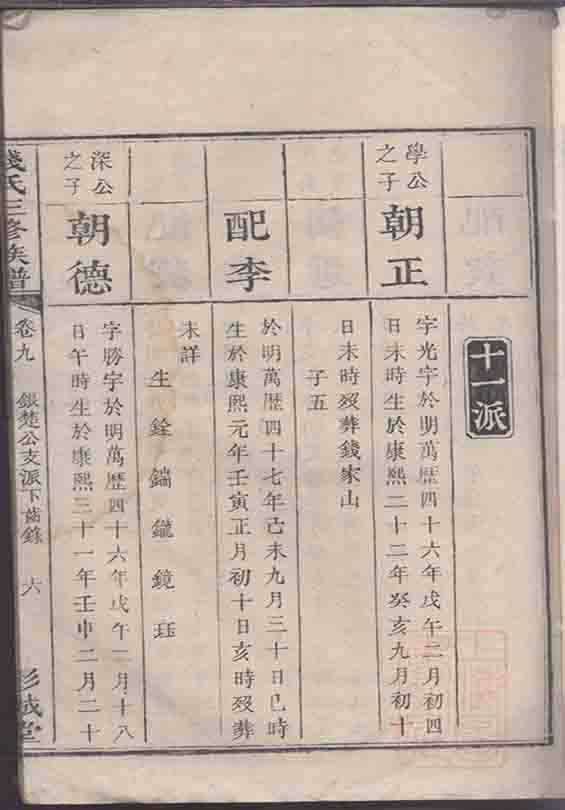 十一派
學公
之子
朝正
字光宇於明萬歷四十六年戊午二月初四
日未時生於康熙二十二年癸亥九月初十
日未時歿葬錢家山
子五
配李
於明萬歷四十七年己未九月三十日巳時
生於康熙元年壬寅正月初十日亥時歿葬
未詳
生銓鏡
深公
之子
朝德
字勝宇於明萬歷四十六年戊午二月十八
日午時生於康熙三十一年壬申二月二十
錢氏三修族譜
卷九
銀楚公支派下齒錄
六
彭城堂